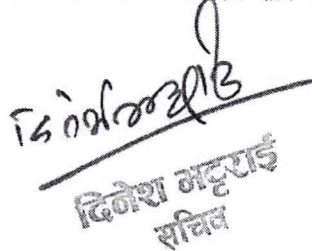 दिनेश भट्टराई
सचिव